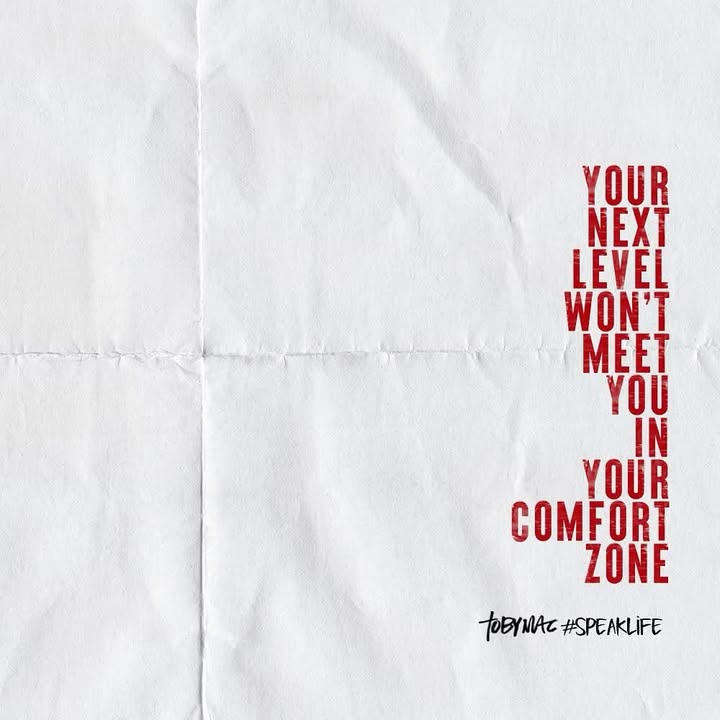 YOUR
NEXT
LEVEL
WON'T
MEET
YOU
IN
YOUR
COMFORT
ZONE
TOBYMAC #SPEAKLIFE